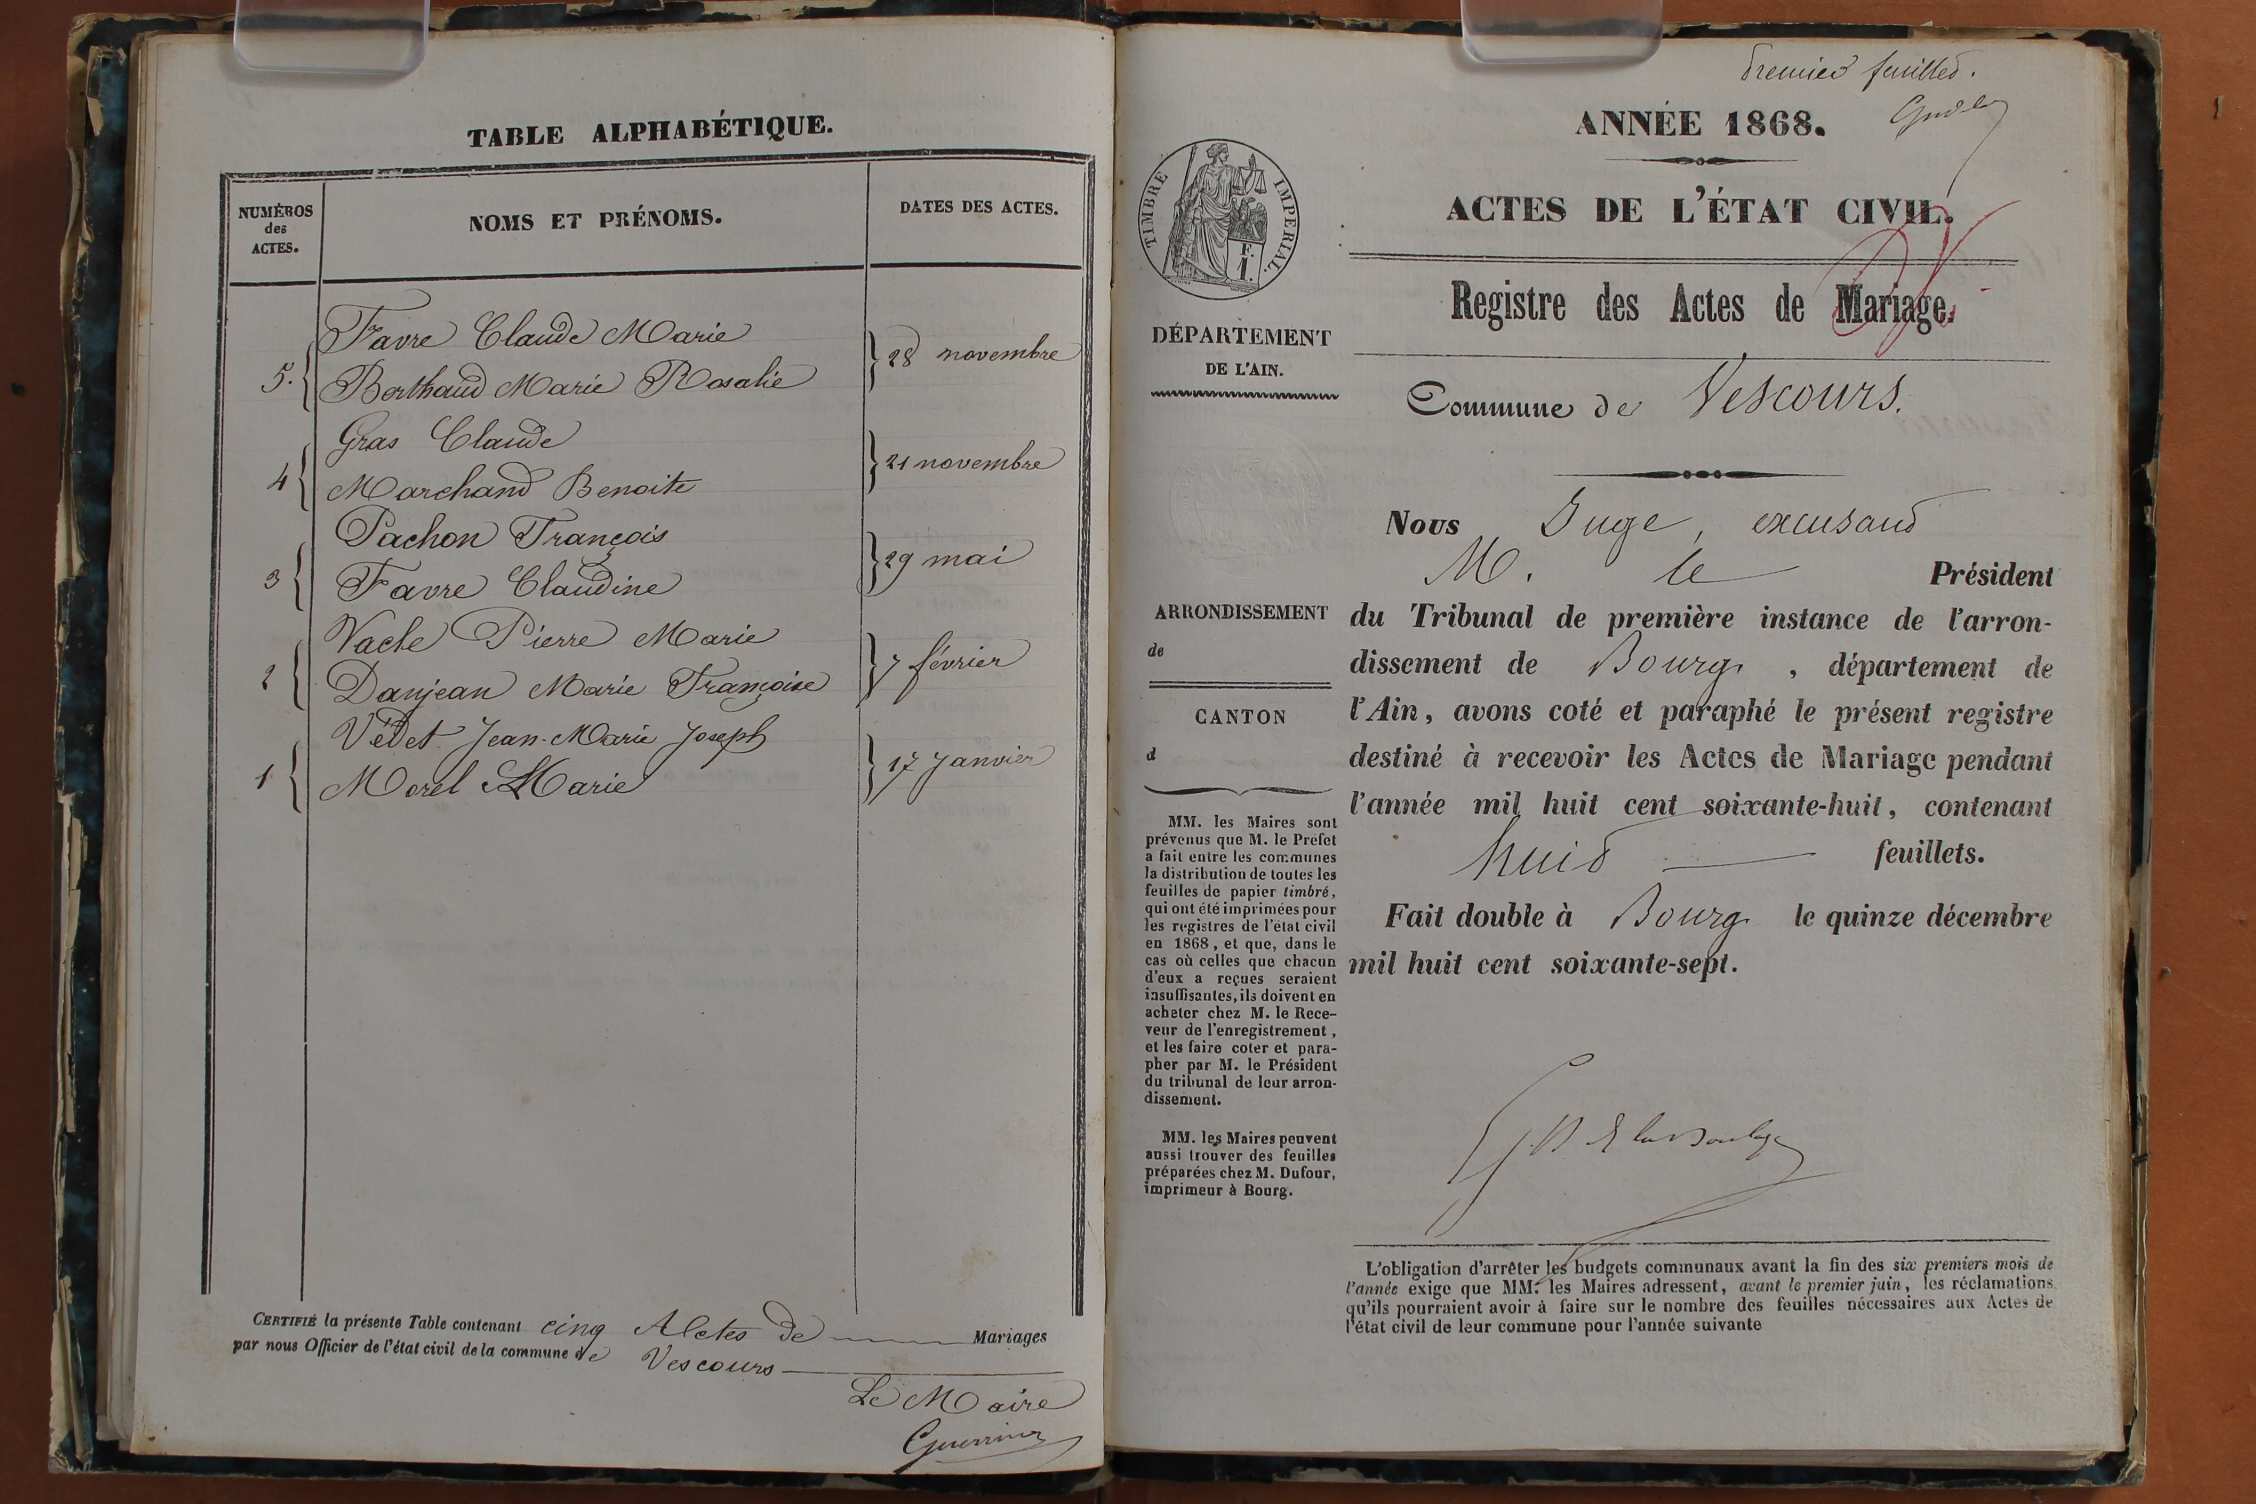 TABLE ALPHABÉTIQUE.
NUMÉROS
des
ACTES.
NOMS ET PRÉNOMS.
DATES DES ACTES.
Favre Claude Marie
5. Berthaud Marie Rosalie
28 novembre
Gras Claude
4 Marchand Benoite
21 novembre
Pachon François
3 Favre Claudine
29 mai
Vacle Pierre Marie
2 Danjean Marie Françoise
7 février
Védet Jean-Marie Joseph
1 Morel Marie
17 Janvier
CERTIFIÉ la présente Table contenant cinq Actes de Mariages
par nous Officier de l'état civil de la commune de Vescours
Le Maire
Premier feuillet.
ANNÉE 1868.
ACTES DE L'ÉTAT CIVIL.
Registre des Actes de Mariage.
Commune de Vescours.
TIMBRE IMPERIAL.
F.
1.
DÉPARTEMENT
DE L'AIN.
ARRONDISSEMENT
de
CANTON
d
MM. les Maires sont
prévenus que M. le Préfet
a fait entre les communes
la distribution de toutes les
feuilles de papier timbré,
qui ont été imprimées pour
les registres de l'état civil
en 1868, et que, dans le
cas où celles que chacun
d'eux a reçues seraient
insuffisantes, ils doivent en
acheter chez M. le Rece-
veur de l'enregistrement,
et les faire coter et para-
pher par M. le Président
du tribunal de leur arron-
dissement.
MM. les Maires peuvent
aussi trouver des feuilles
préparées chez M. Dufour,
imprimeur à Bourg.
Nous Juge, excusant
M. le Président
du Tribunal de première instance de l'arron-
dissement de Bourg, département de
l'Ain, avons coté et paraphé le présent registre
destiné à recevoir les Actes de Mariage pendant
l'année mil huit cent soixante-huit, contenant
huit feuillets.
Fait double à Bourg le quinze décembre
mil huit cent soixante-sept.
L'obligation d'arrêter les budgets communaux avant la fin des six premiers mois de
l'année exige que MM. les Maires adressent, avant le premier juin, les réclamations
qu'ils pourraient avoir à faire sur le nombre des feuilles nécessaires aux Actes de
l'état civil de leur commune pour l'année suivante